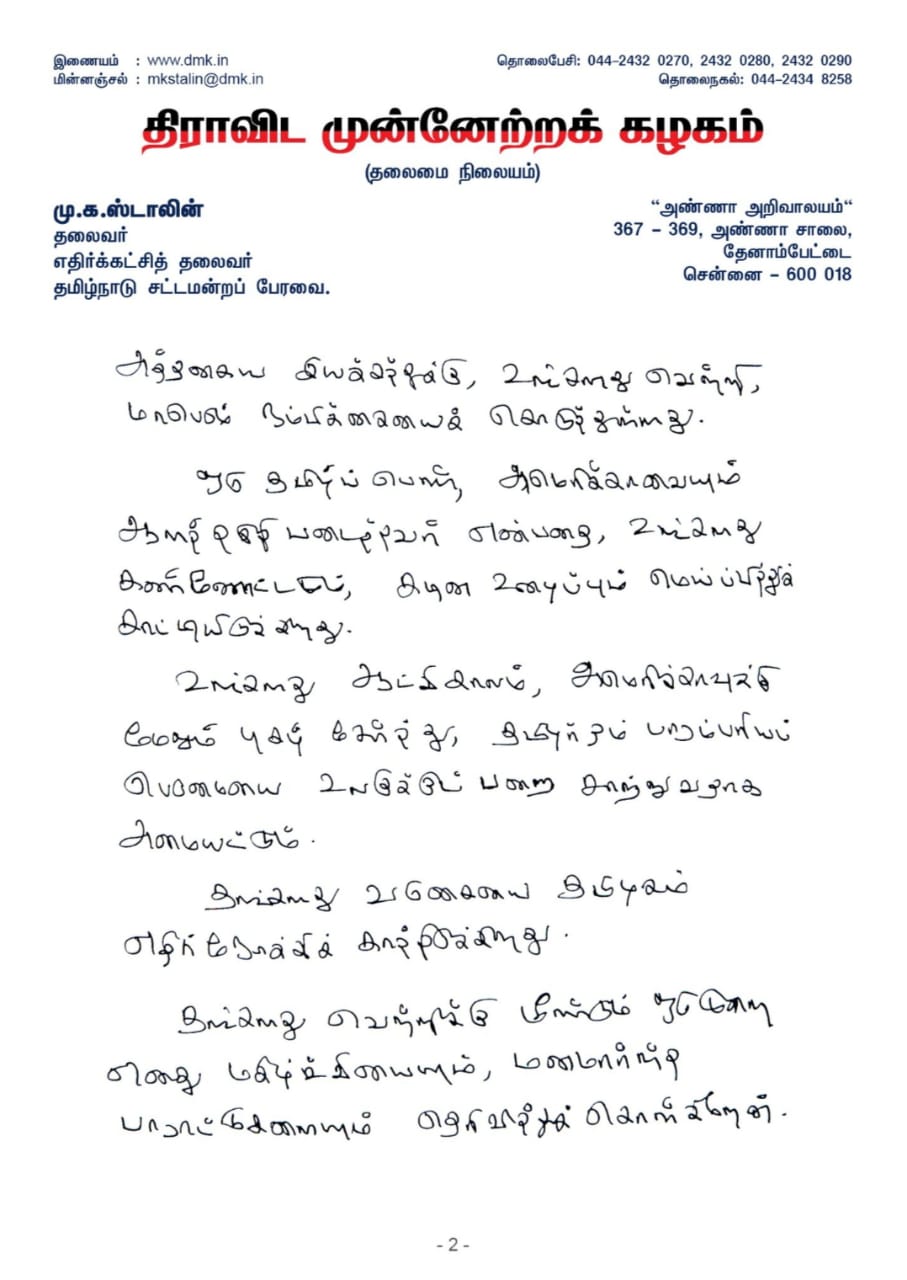 இணையம் : www.dmk.in
மின்னஞ்சல் : mkstalin@dmk.in
தொலைபேசி: 044-2432 0270, 2432 0280, 2432 0290
தொலைநகல்: 044-2434 8258
திராவிட முன்னேற்றக் கழகம்
(தலைமை நிலையம்)
மு.க.ஸ்டாலின்
தலைவர்
எதிர்க்கட்சித் தலைவர்
தமிழ்நாடு சட்டமன்றப் பேரவை.
“அண்ணா அறிவாலயம்“
367 – 369, அண்ணா சாலை,
தேனாம்பேட்டை
சென்னை – 600 018
அத்தகைய இயக்கத்துக்கு, உங்களது வெற்றி,
மாபெரும் நம்பிக்கையைக் கொடுத்துள்ளது.
ஒரு தமிழ்ப் பெண், அமெரிக்காவையும்
ஆளத் தகுதி படைத்தவர் என்பதை, உங்களது
கண்ணோட்டமும், கடின உழைப்பும் மெய்ப்பித்துக்
காட்டியிருக்கிறது.
உங்களது ஆட்சிகாலம், அமெரிக்காவுக்கு
மேலும் புகழ் சேர்த்து, தமிழர் தம் பாரம்பரியப்
பெருமையை உலகுக்குப் பறை சாற்றுவதாக
அமையட்டும்.
தங்களது வருகையை தமிழகம்
எதிர்நோக்கிக் காத்திருக்கிறது.
தங்களது வெற்றிக்கு மீண்டும் ஒருமுறை
எனது மகிழ்ச்சியையும், மனமார்ந்த
பாராட்டுகளையும் தெரிவித்துக் கொள்கிறேன்.
- 2 -